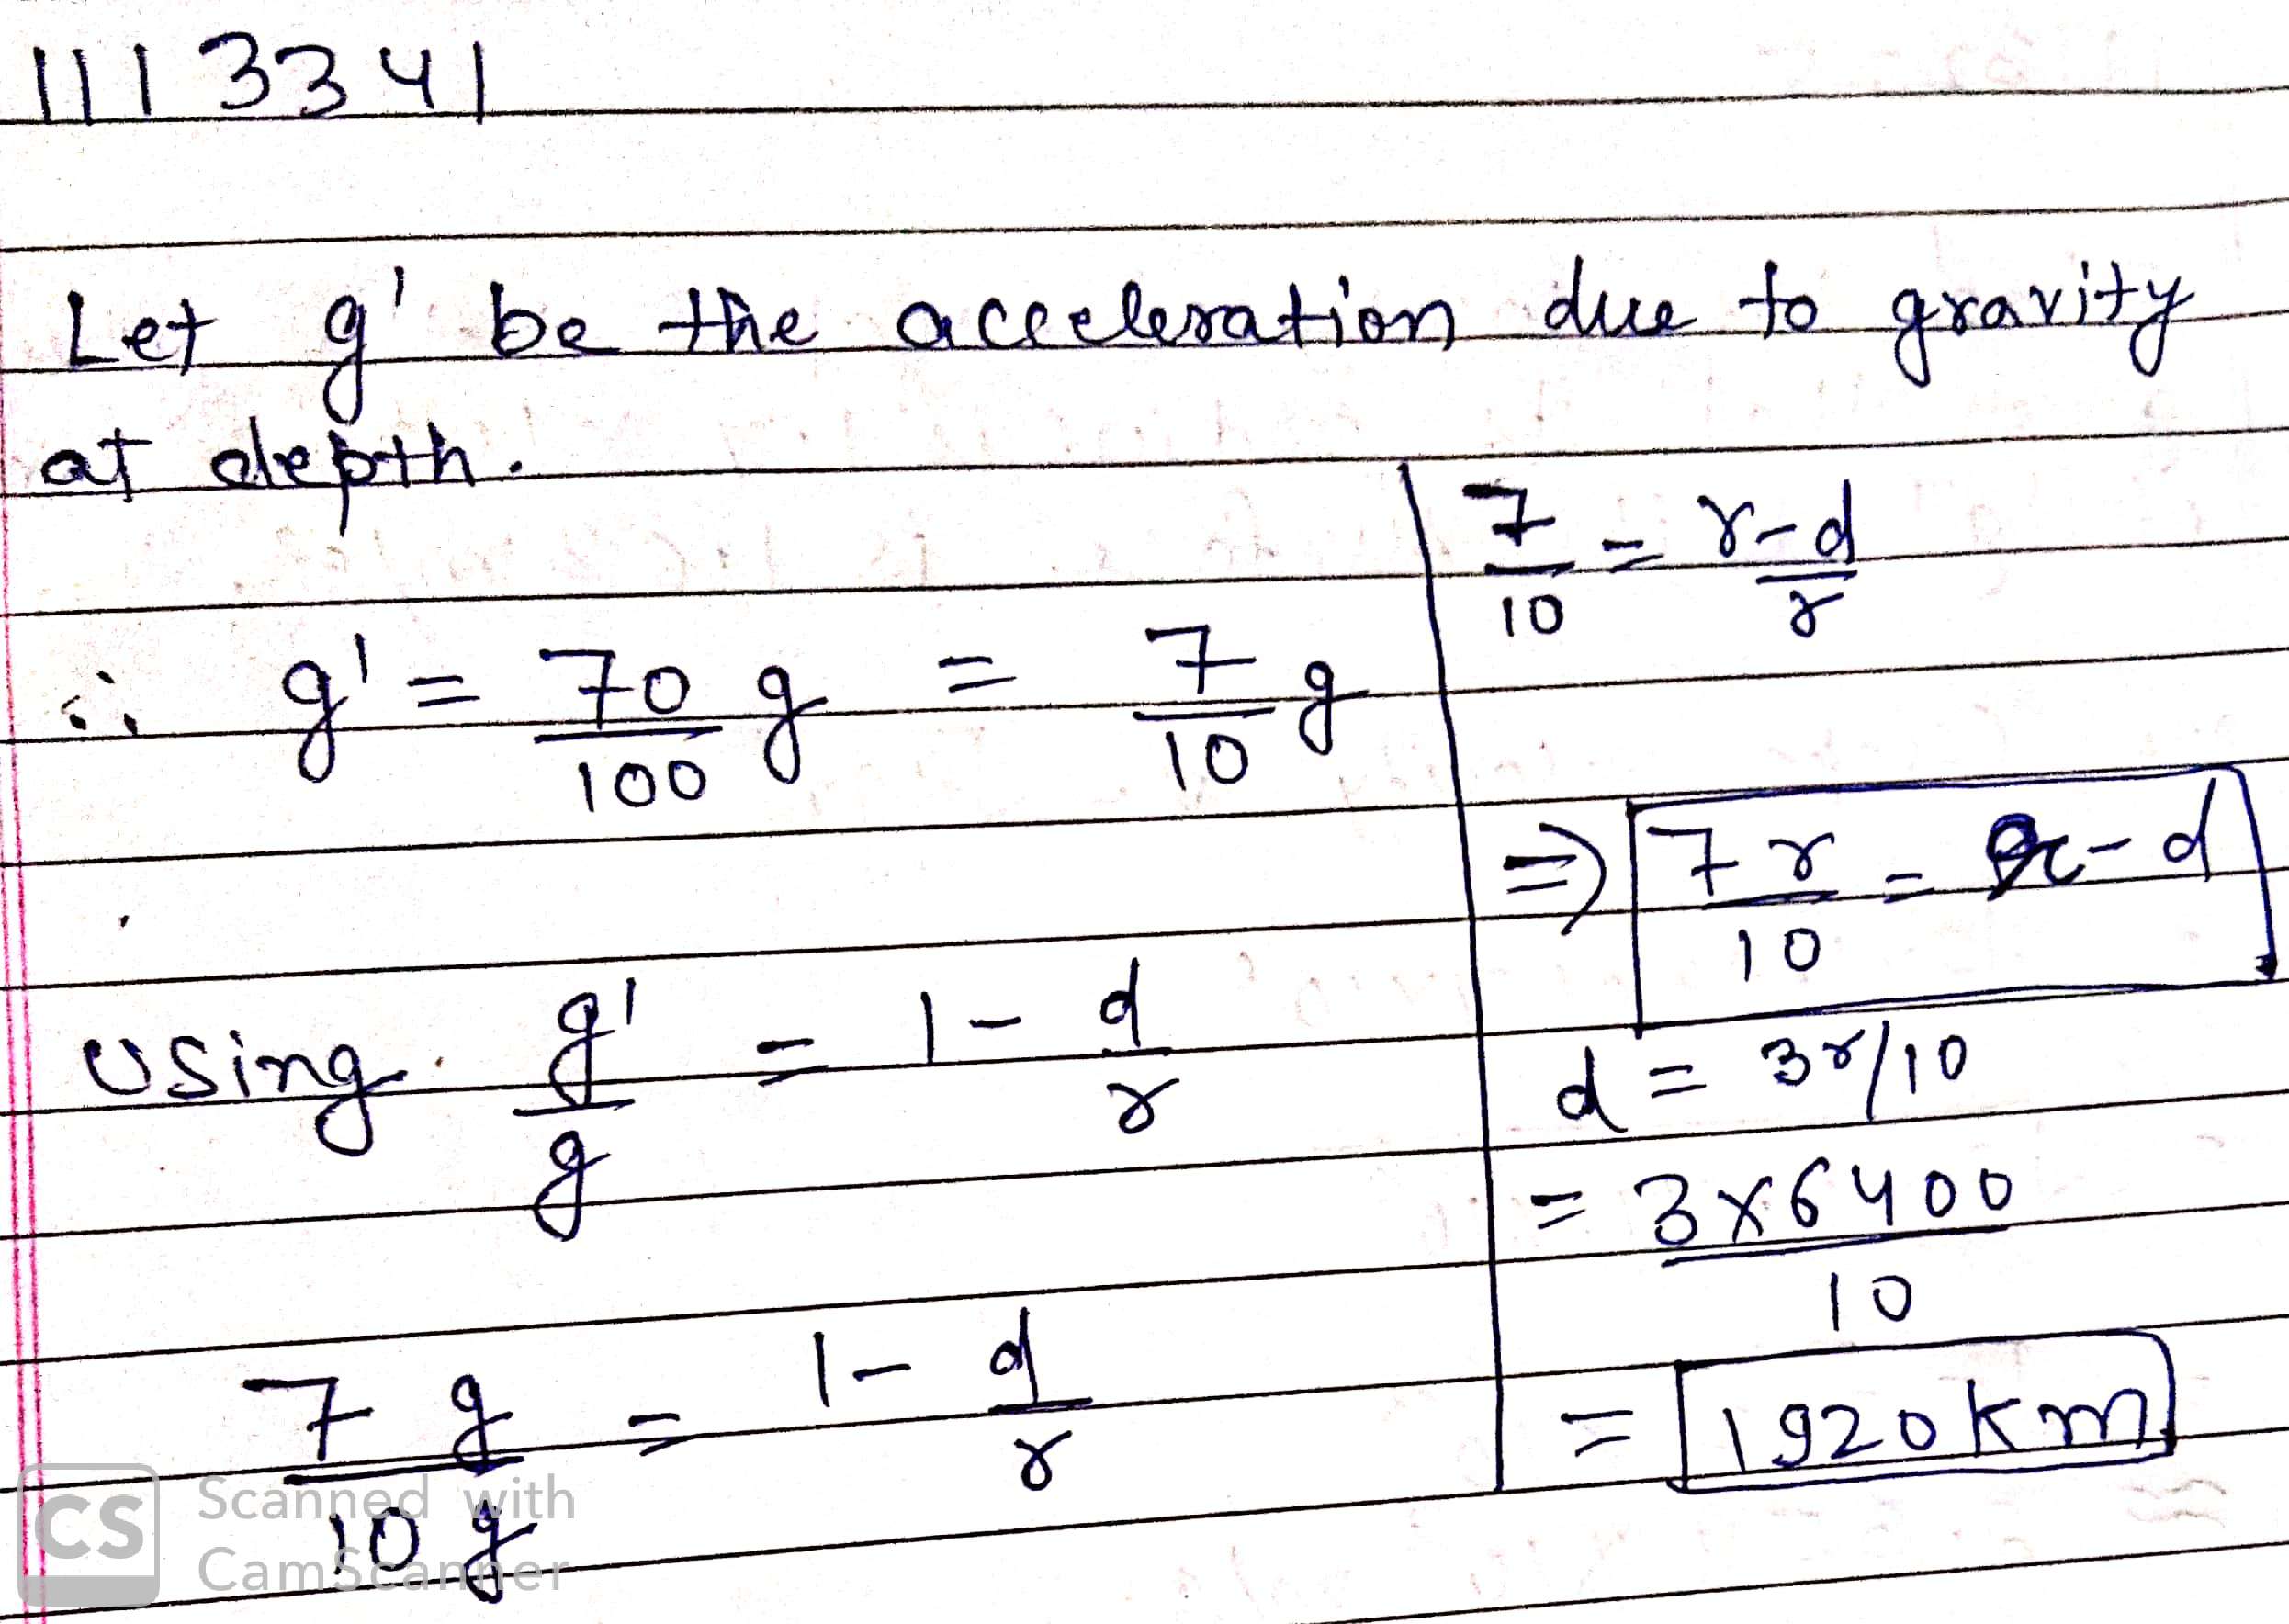 1113341
Let g' be the acceleration due to gravity
at depth.
∴ g' = 70/100 g = 7/10 g
Using g'/g = 1 - d/r
7g/10g = 1 - d/r
7/10 = r-d/r
⇒ 7r/10 = r-d
d = 3r/10
= 3×6400/10
= 1920km
CS Scanned with
CamScanner